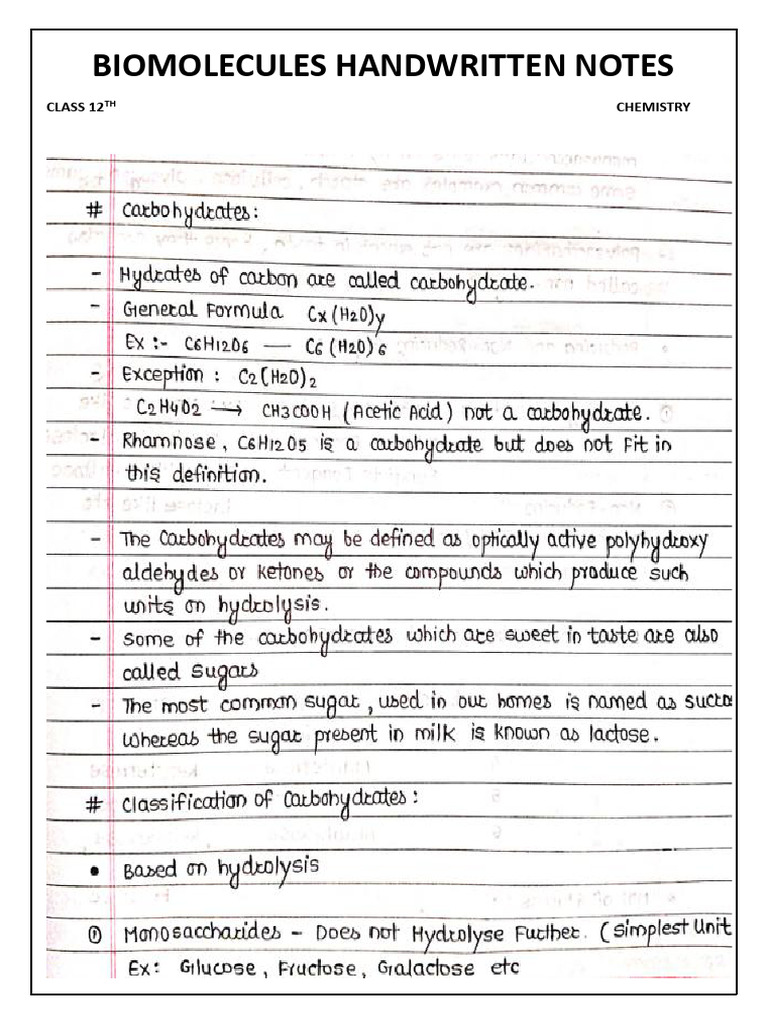 BIOMOLECULES HANDWRITTEN NOTES
CLASS 12TH CHEMISTRY
# Carbohydrates:
- Hydrates of carbon are called carbohydrate.
- General Formula Cx(H2O)y
Ex :- C6H12O6 — C6(H2O)6
- Exception : C2(H2O)2
C2H4O2 → CH3COOH (Acetic Acid) not a carbohydrate.
- Rhamnose, C6H12O5 is a carbohydrate but does not Fit in
this definition.
- The Carbohydrates may be defined as optically active polyhydroxy
aldehydes or ketones or the compounds which produce such
units on hydrolysis.
- Some of the carbohydrates which are sweet in taste are also
called sugars
- The most common sugar, used in our homes is named as sucro
whereas the sugar present in milk is known as lactose.
# Classification of Carbohydrates:
• Based on hydrolysis
① Monosaccharides - Does not Hydrolyse Further. (Simplest Unit
Ex: Glucose, Fructose, Galactose etc